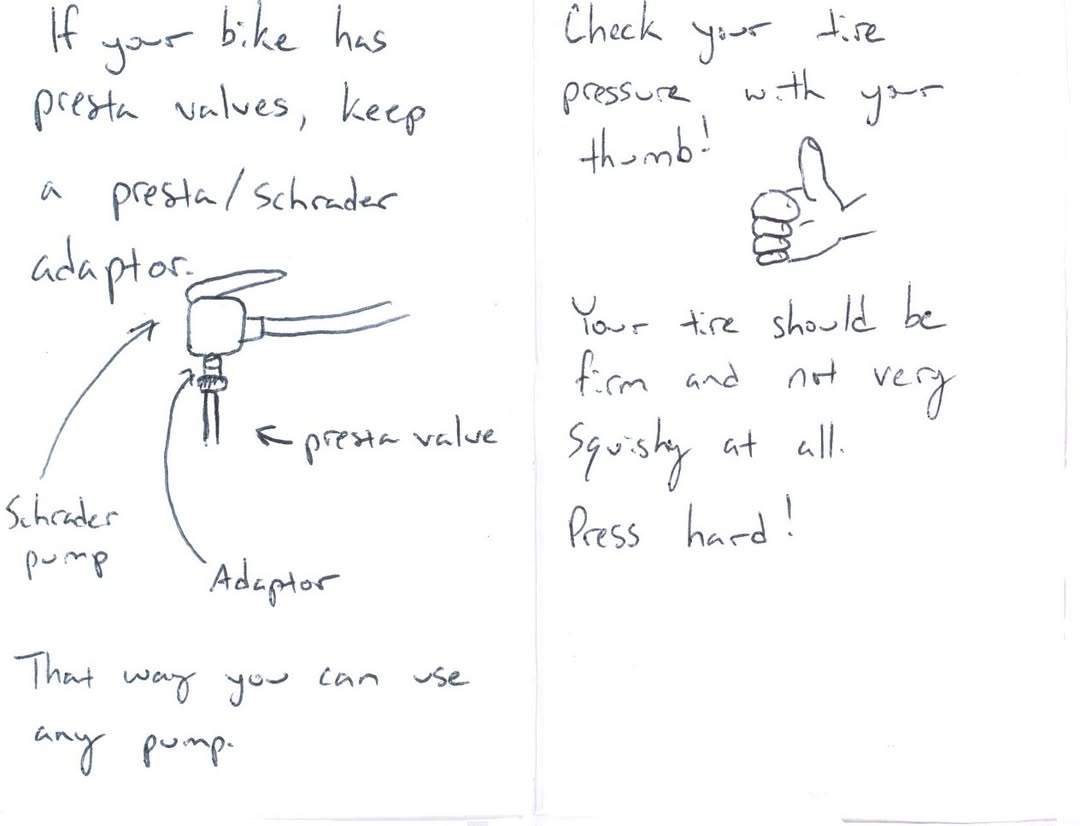 If your bike has
presta valves, keep
a presta/schrader
adaptor.
← presta valve
Schrader
pump
Adaptor
That way you can use
any pump.
Check your tire
pressure with your
thumb!
Your tire should be
firm and not very
squishy at all.
Press hard!